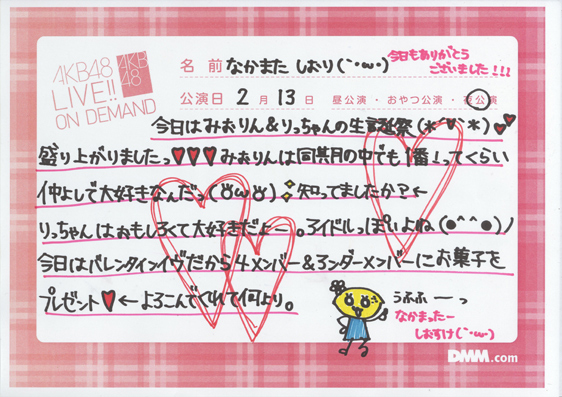 AKB48
LIVE!!
ON DEMAND
AKB
48
名 前 なかまた しおり(`・ω・)
今日もありがとう
ございました!!!
公演日 2月13日 昼公演・おやつ公演・夜公演
今日はみおりん&りっちゃんの生誕祭(*´∀`*)
盛り上がりましたっ♥♥♥みおりんは同期の中でも1番ってくらい
仲よしで大好きなんだっ(ФωФ)知ってましたか?←
りっちゃんはおもしろくて大好きだよー。アイドルっぽいよね(●^^●)ノ
今日はバレンタインイヴだから4メンバー&アンダーメンバーにお菓子を
プレゼント♥←よろこんでくれて何より。
うふふーっ
なかまったー
しおすけ(`・ω・)
DMM.com